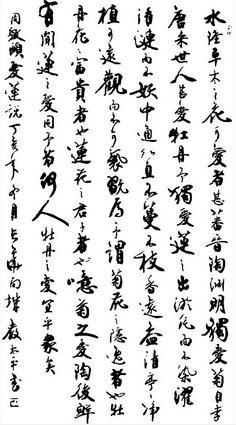 水陸草木之花可愛者甚蕃晉陶淵明獨愛菊自李
唐來世人甚愛牡丹予獨愛蓮之出淤泥而不染濯
清漣而不妖中通外直不蔓不枝香遠益清亭亭淨
植可遠觀而不可褻翫焉予謂菊花之隱逸者也牡
丹花之富貴者也蓮花之君子者也噫菊之愛陶後鮮
有聞蓮之愛同予者何人牡丹之愛宜乎衆矣
周敦頤愛蓮說丁亥年月太平書